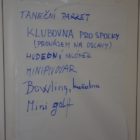 TANEČNÍ PARKET
KLUBOVNA PRO SPOLKY
(PRONÁJEM NA OSLAVY)
HUDEBNÍ
MINIPIVOVAR
Bowling,
Mini golf